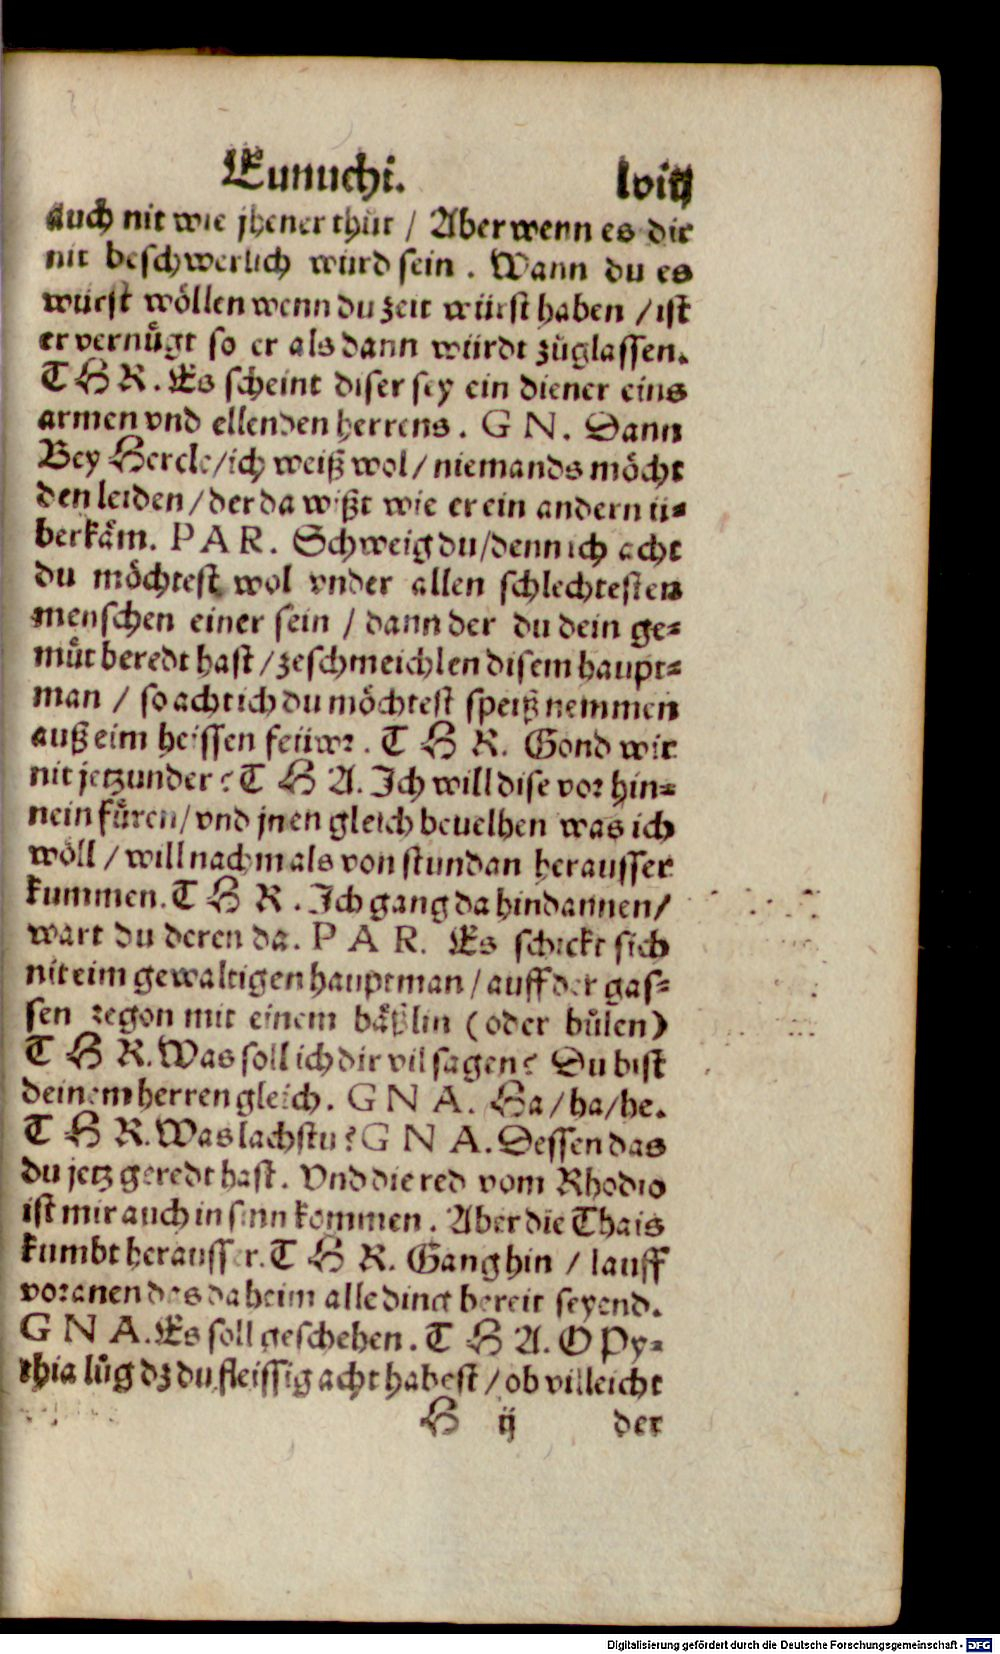 Eunuchi. lviij
auch nit wie jhener thůt / Aber wenn es dir
nit beschwerlich würd sein . Wann du es
würst wöllen wenn du zeit würst haben / ist
er vernůgt so er als dann würdt zůglassen.
T H R . Es scheint diser sey ein diener eins
armen vnd ellenden herrens . G N . Dann
Bey Hercle / ich weiß wol / niemands möcht
den leiden / der da wißt wie er ein andern ü-
berkäm. P A R . Schweig du / denn ich acht
du möchtest wol vnder allen schlechtesten
menschen einer sein / dann der du dein ge-
můt beredt hast / zeschmeichlen disem haupt-
man / so acht ich du möchtest speiß nemmen
auß eim heissen feüwr . T H R. Gond wir
nit jetzunder ? T H A. Ich will dise vor hin-
nein fůren / vnd jnen gleich beuelhen was ich
wöll / will nachmals von stundan herausser
kummen. T H R . Ich gang da hindannen /
wart du deren da. P A R. Es schickt sich
nit eim gewaltigen hauptman / auff der gas-
sen zegon mit einem bäßlin (oder bůlen)
T H R. Was soll ich dir vil sagen ? Du bist
deinem herren gleich . G N A . Ha / ha / he.
T H R. Was lachstu ? G N A . Dessen das
du jetz geredt hast . Vnd die red vom Rhodio
ist mir auch in sinn kommen . Aber die Thais
kumbt herausser. T H R . Gang hin / lauff
voranen das daheim alle dinct bereit seyend.
G N A . Es soll geschehen . T H A. O Py-
thia lůg dz du fleissig acht habest / ob villeicht
H ij der
Digitalisierung gefördert durch die Deutsche Forschungsgemeinschaft - DFG